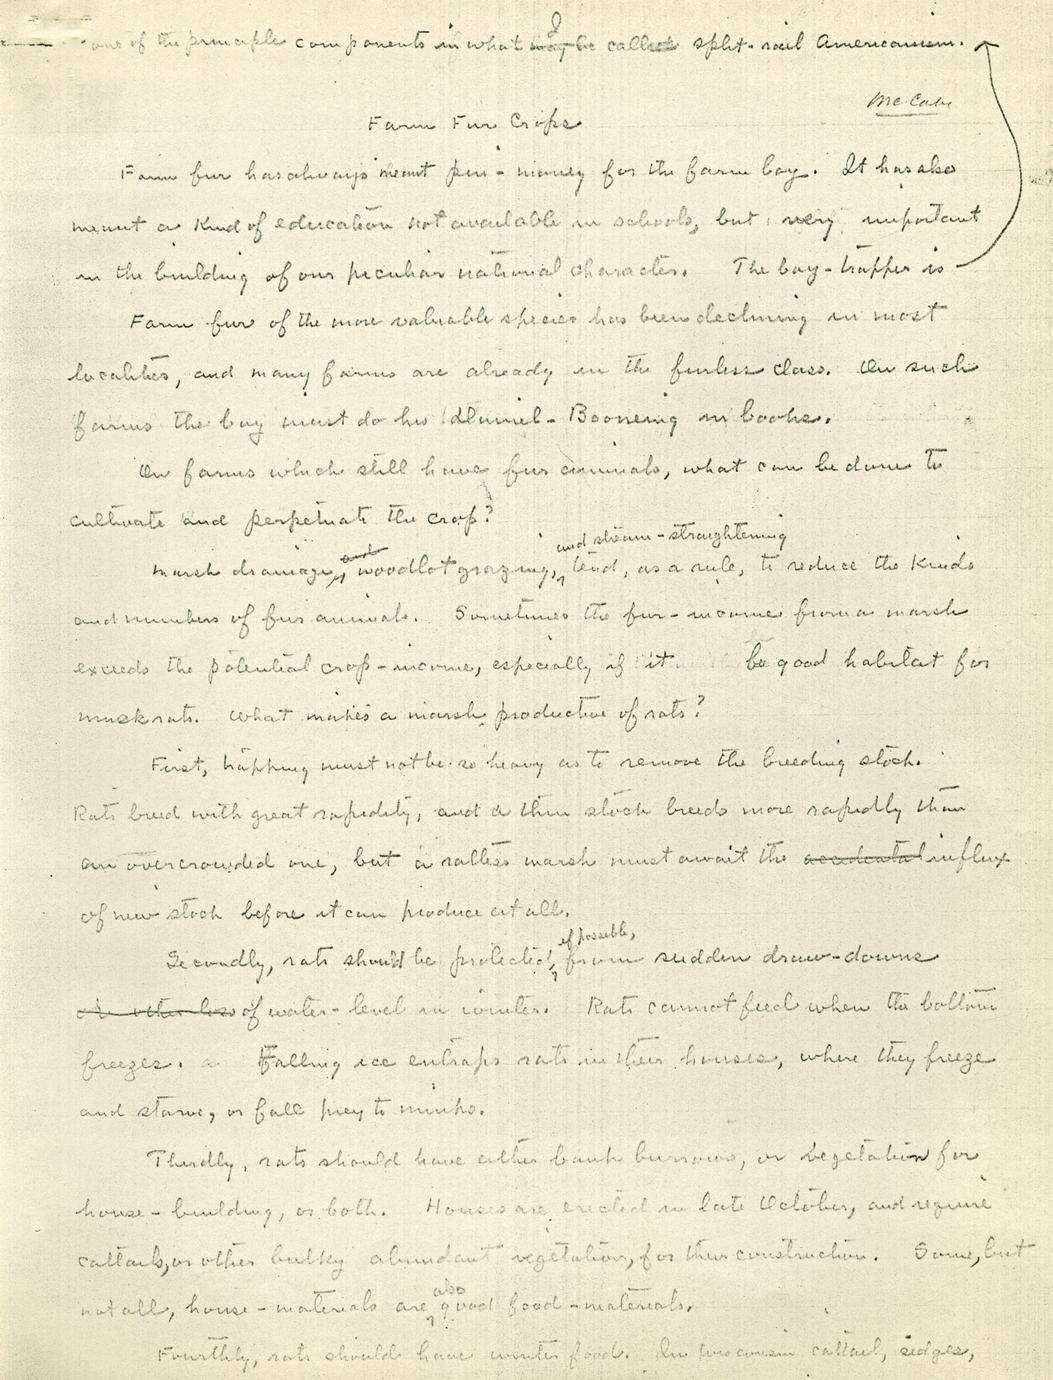 one of the principle components in what I call split-rail Americanism.
McCabe
Farm Fur Crops
Farm fur has always meant pin-money for the farm boy. It has also
meant a kind of education not available in schools, but very important
in the building of our peculiar national character. The boy-trapper is
Farm fur of the more valuable species has been declining in most
localities, and many farms are already in the furless class. On such
farms the boy must do his Daniel-Booneing in books.
On farms which still have fur animals, what can be done to
cultivate and perpetuate the crop?
and stream-straightening
Marsh drainage, woodlot grazing, tend, as a rule, to reduce the kinds
and numbers of fur animals. Sometimes the fur-income from a marsh
exceeds the potential crop-income, especially if it be good habitat for
muskrats. What makes a marsh productive of rats?
First, trapping must not be so heavy as to remove the breeding stock.
Rats breed with great rapidity, and a thin stock breeds more rapidly than
an overcrowded one, but a ratless marsh must await the accidental influx
of new stock before it can produce at all.
if possible,
Secondly, rats should be protected, from sudden draw-downs
of water-level in winter. Rats cannot feed when the bottom
freezes. Falling ice entraps rats in their houses, where they freeze
and starve, or fall prey to minks.
Thirdly, rats should have either bank burrows, or vegetation for
house-building, or both. Houses are erected in late October, and require
cattails, or other bulky abundant vegetation, for their construction. Some, but
also
not all, house-materials are good food-materials.
Fourthly, rats should have winter food. In Wisconsin cattail, sedges,